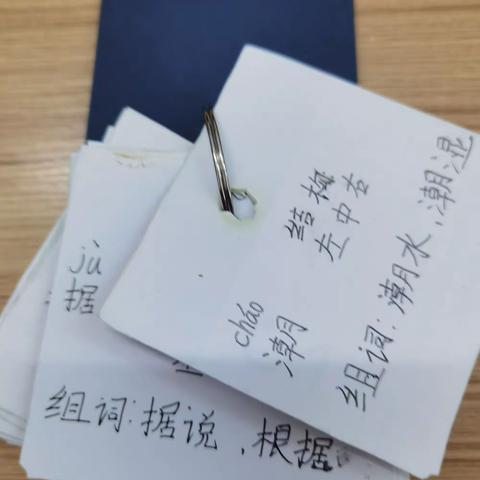 cháo
潮
结构
左中右
组词:潮水,潮湿
jù
据
组词:据说,根据。